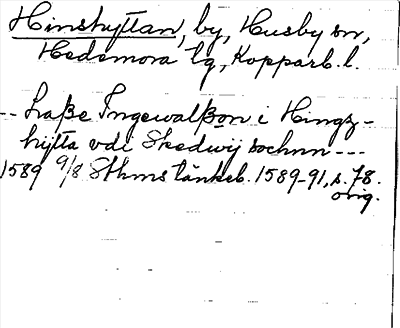 Hinshyttan, by, Husby sn,
Hedemora tg, Kopparb. l.
-- Laße Ingewalßon i Hingz-
hytta vdi Skedwij sochnn ---
1589 9/8 Sthms tänkeb. 1589-91, s. 78.
orig.